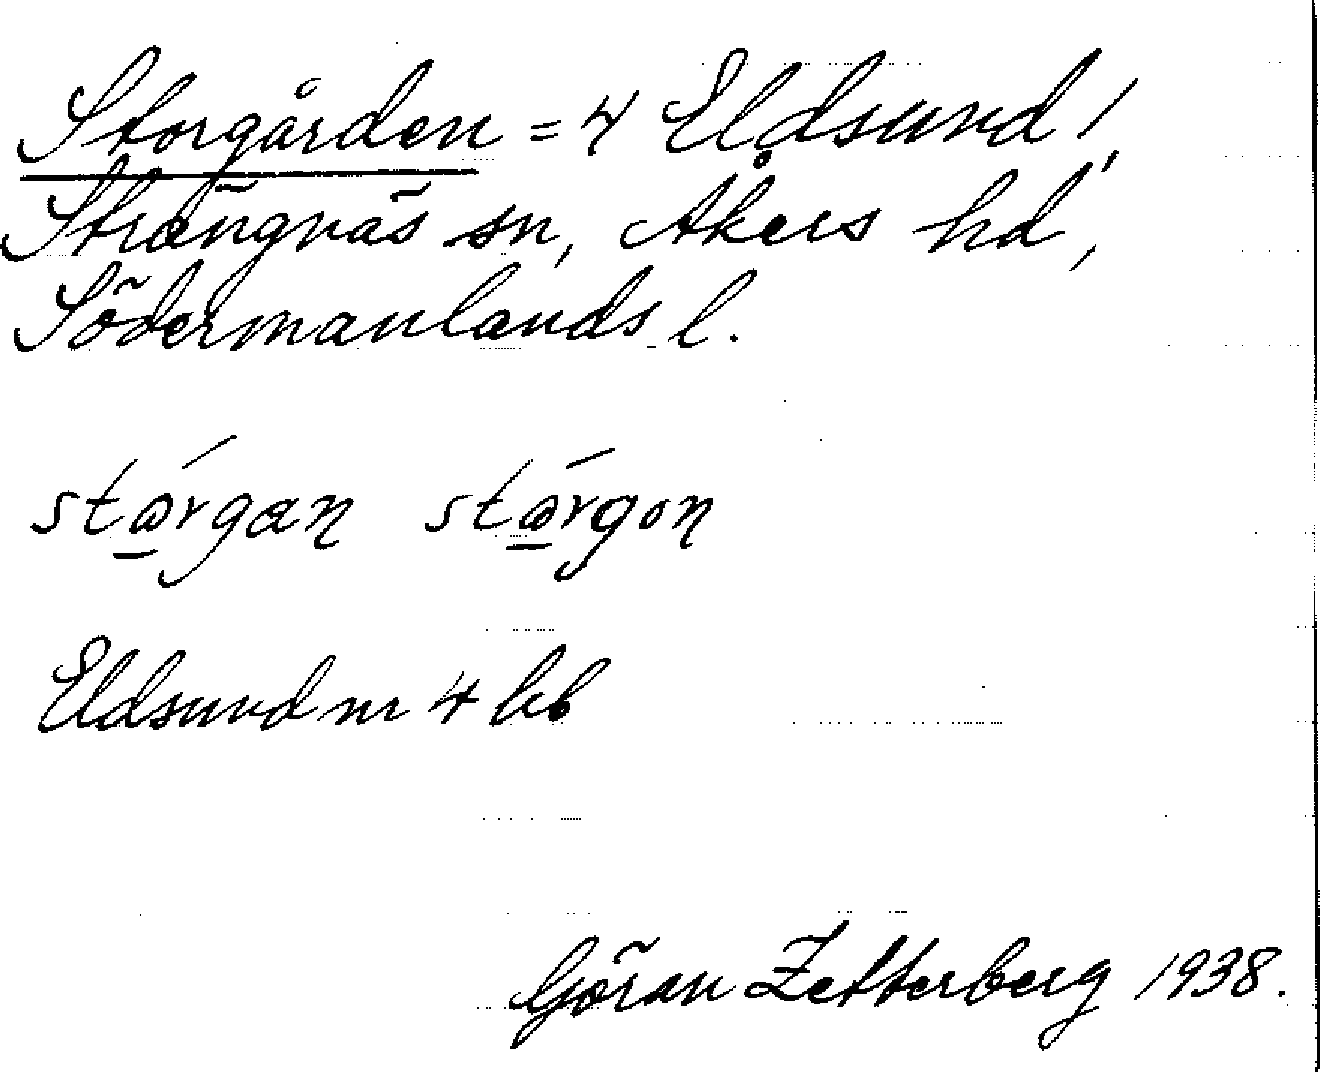 Storgården = 4 Eldsund,
Strängnäs sn, Åkers hd,
Södermanlands l.
Eldsund nr 4 kb
Göran Zetterberg 1938.